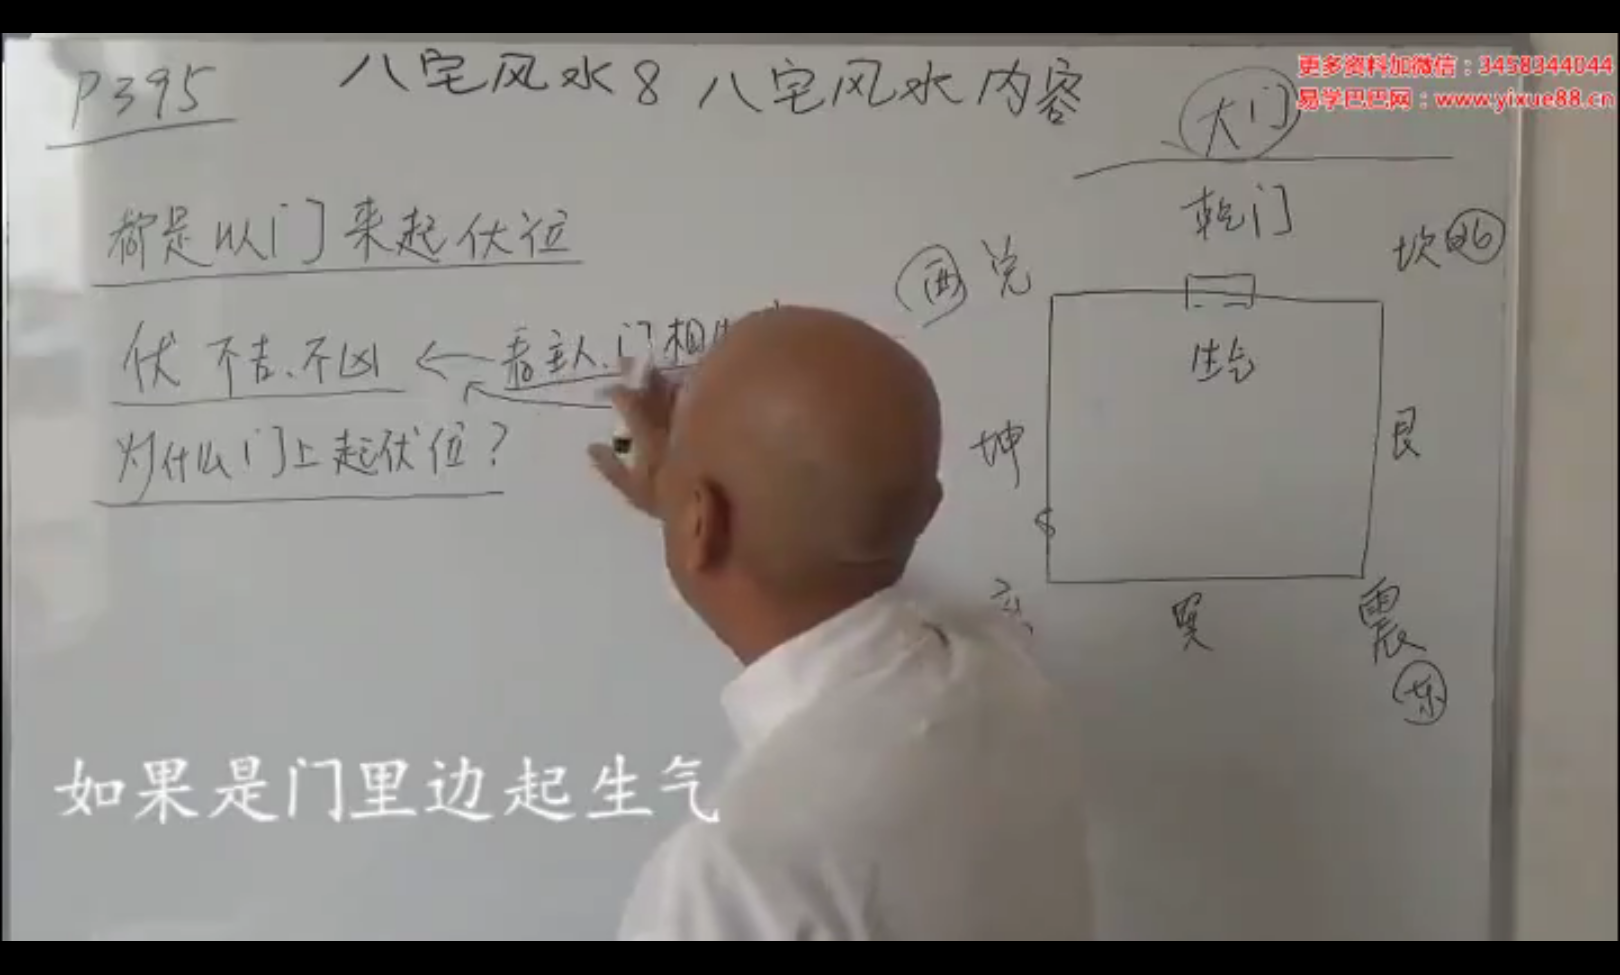 更多资料加微信：3458344044
易学巴巴网：www.yixue88.cn
P395
八宅风水8 八宅风水内容
大门
都是以门来起伏位
乾门
西 兑
坎 北
伏 不吉、不凶 ← 看主人、门相
生气
为什么门上起伏位？
坤
艮
巽
震
东
如果是门里边起生气